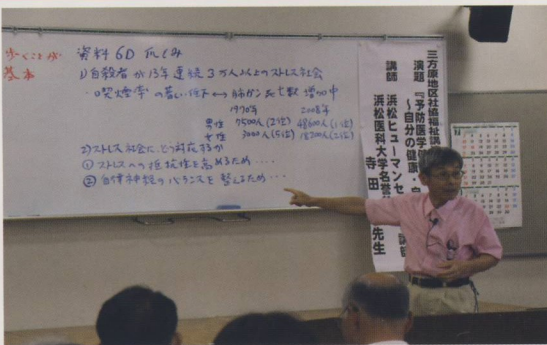 歩くことが
基本
資料6D
1)自殺者が13年連続3万人以上のストレス社会
喫煙率の著しい低下↔肺がん死亡数 増加中
1970年 2008年
男性 7500人(2位) 48600人(1位)
女性 3000人(5位) 18200人(2位)
2)ストレス社会にどう対応するか
①ストレスへの抵抗性を高めるため・・・
②自律神経のバランスを整えるため・・・
三方原地区社協福祉講
演題 『予防医学
～自分の健康・自
講師 浜松ヒューマンセ
浜松医科大学名誉
寺田 先生